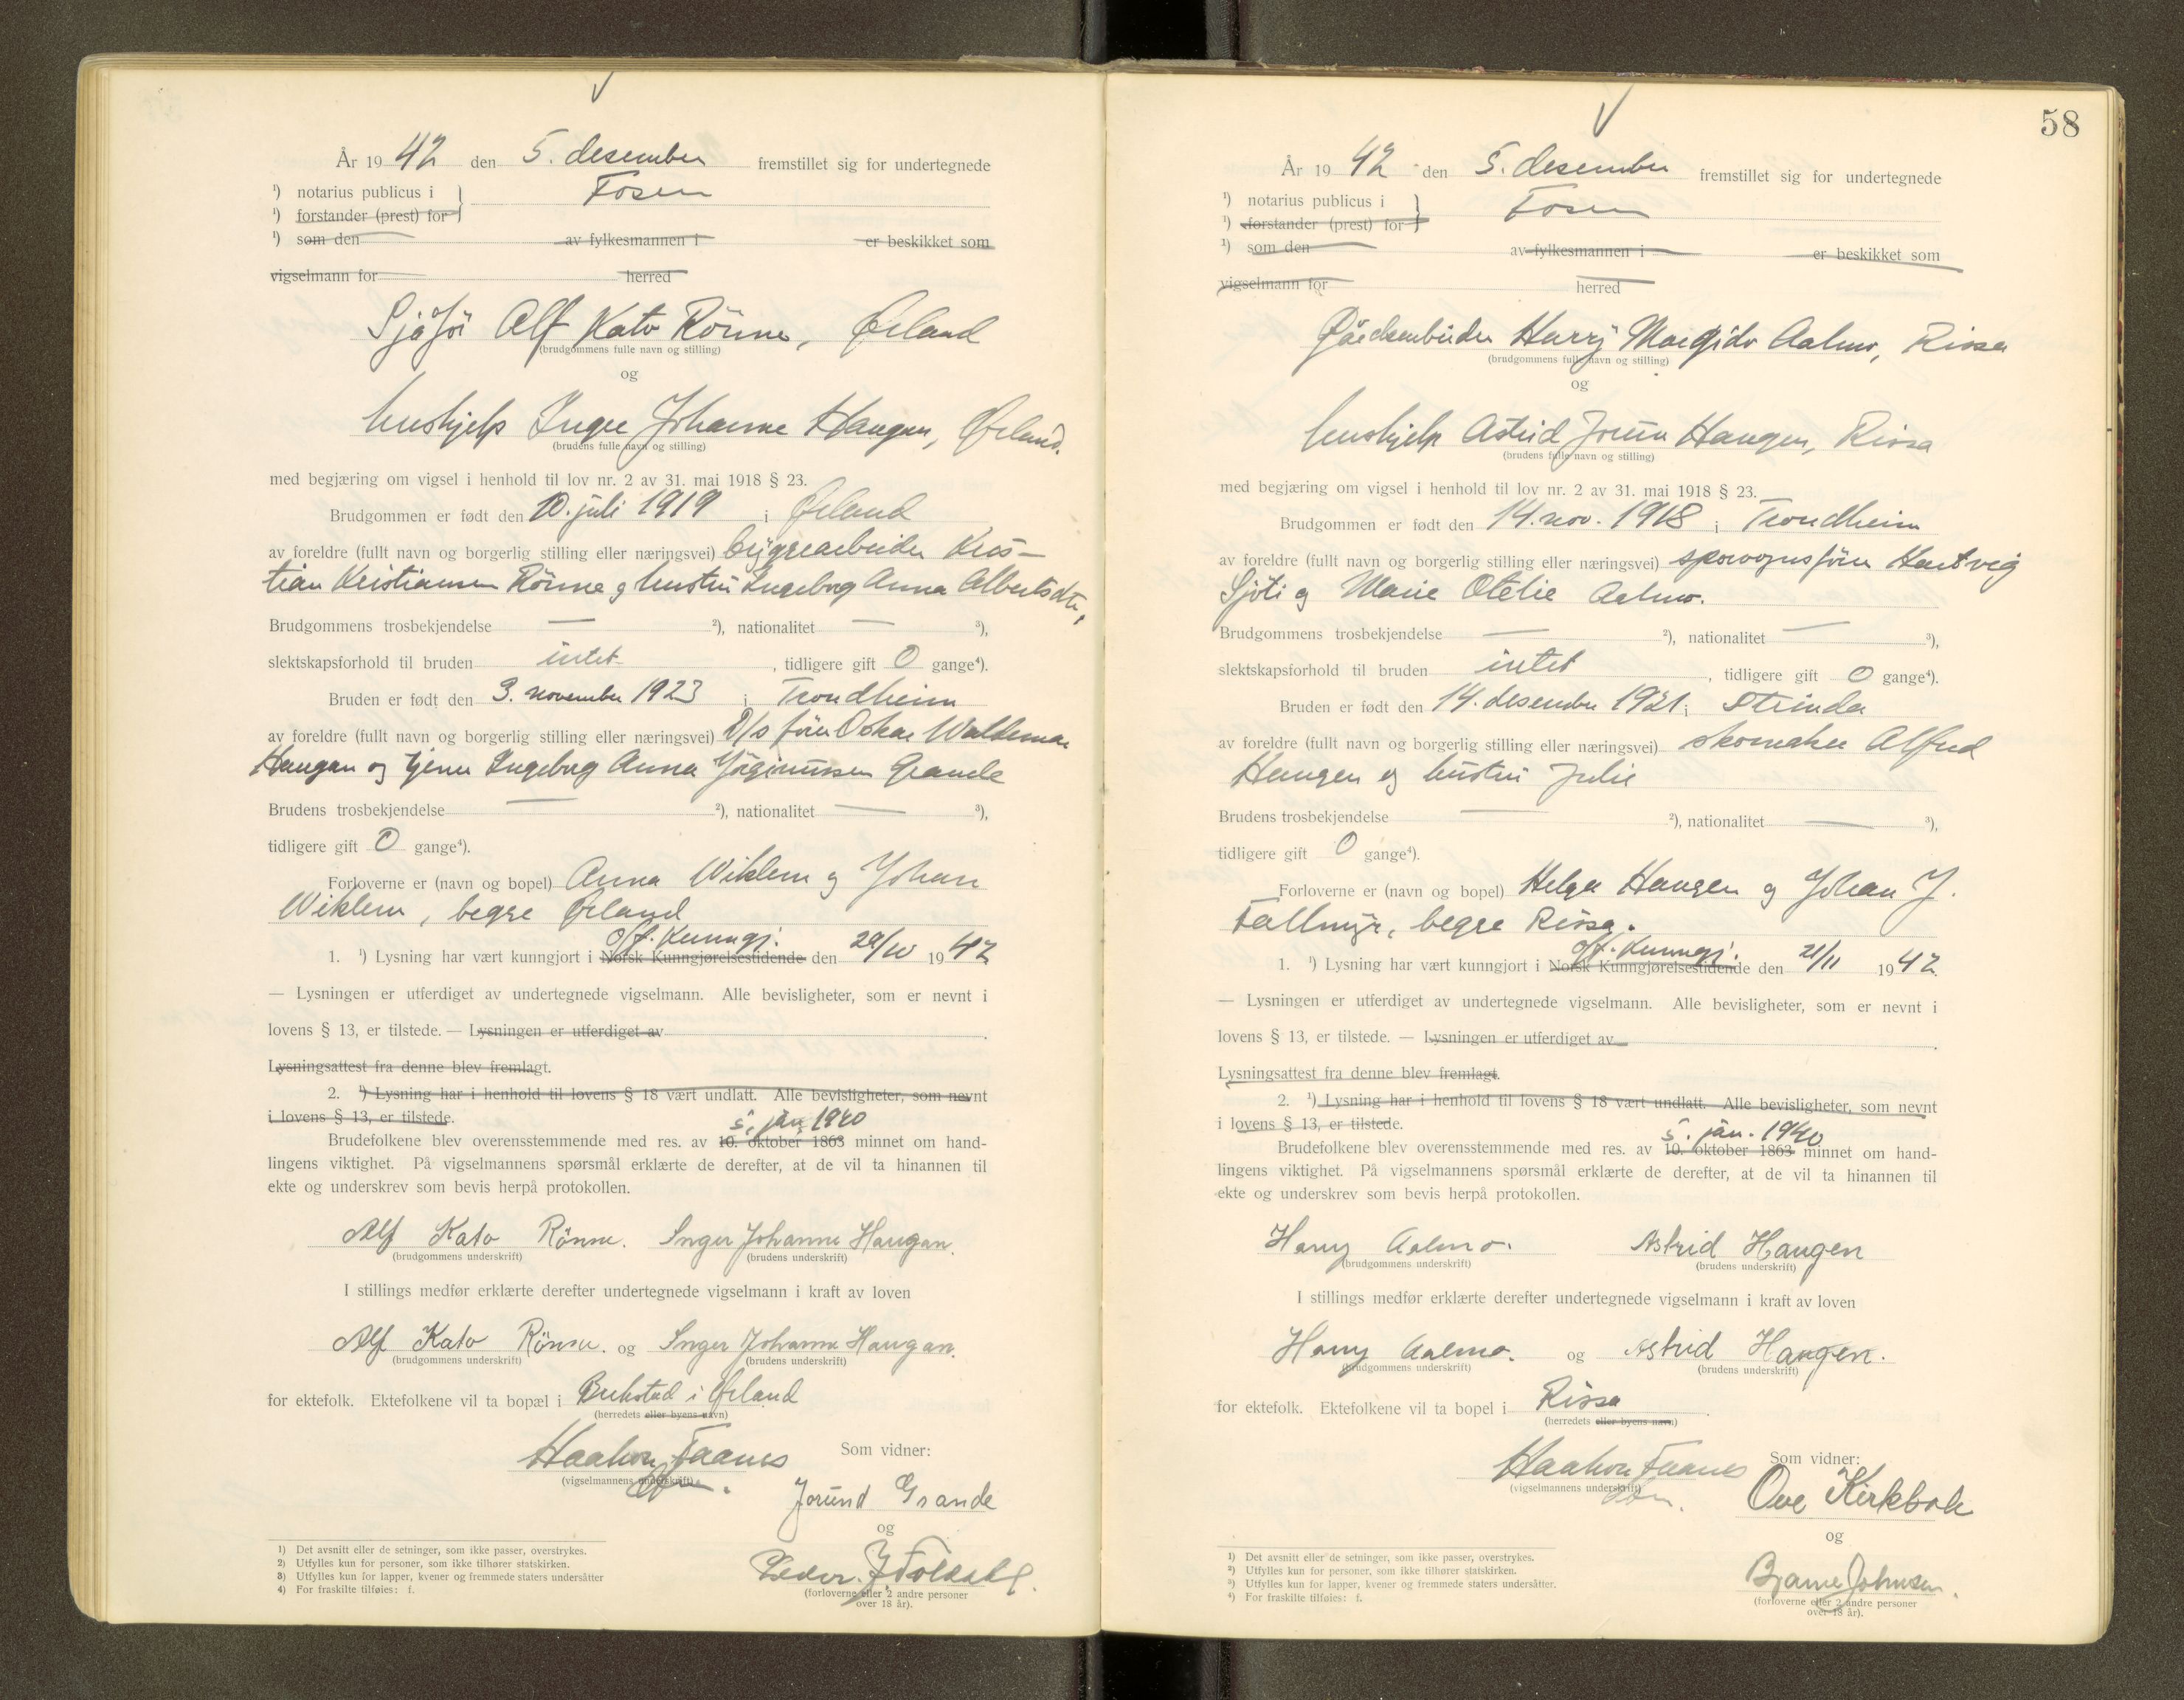 År 1942 den 5. desember fremstillet sig for undertegnede
¹) notarius publicus i } Fosen
¹) forstander (prest) for
¹) som den av fylkesmannen i er beskikket som
vigselmann for herred
Sjåfør Alf Kato Rönne, Ørland
(brudgommens fulle navn og stilling)
og
hushjelp Inger Johanne Haugan, Ørland.
(brudens fulle navn og stilling)
med begjæring om vigsel i henhold til lov nr. 2 av 31. mai 1918 § 23.
Brudgommen er født den 10. juli 1919 i Ørland
av foreldre (fullt navn og borgerlig stilling eller næringsvei) byggearbeider Kris-
tian Kristiansen Rönne og hustru Ingeborg Anna Albertsdtr,
Brudgommens trosbekjendelse — ²), nationalitet — ³),
slektskapsforhold til bruden intet, tidligere gift 0 gange⁴).
Bruden er født den 3. november 1923 i Trondheim
av foreldre (fullt navn og borgerlig stilling eller næringsvei) D/s fører Oskar Waldemar
Haugan og tjener Ingeborg Anna Grande
Brudens trosbekjendelse — ²), nationalitet — ³),
tidligere gift 0 gange⁴).
Forloverne er (navn og bopel) Anna Wiklem og Johan
Wiklem, begge Ørland
off. Kunngj.
1. ¹) Lysning har vært kunngjort i Norsk Kunngjørelsestidende den 29/10 1942
— Lysningen er utferdiget av undertegnede vigselmann. Alle bevisligheter, som er nevnt i
lovens § 13, er tilstede. — Lysningen er utferdiget av .
Lysningsattest fra denne blev fremlagt.
2. ¹) Lysning har i henhold til lovens § 18 vært undlatt. Alle bevisligheter, som nevnt
i lovens § 13, er tilstede.
5. jan. 1940
Brudefolkene blev overensstemmende med res. av 10. oktober 1863 minnet om hand-
lingens viktighet. På vigselmannens spørsmål erklærte de derefter, at de vil ta hinannen til
ekte og underskrev som bevis herpå protokollen.
Alf Kato Rönne. Inger Johanne Haugan.
(brudgommens underskrift) (brudens underskrift)
I stillings medfør erklærte derefter undertegnede vigselmann i kraft av loven
Alf Kato Rönne. og Inger Johanne Haugan.
(brudgommens underskrift) (brudens underskrift)
for ektefolk. Ektefolkene vil ta bopæl i Brekstad i Ørland
(herredets eller byens navn)
Haakon Faanes Som vidner:
(vigselmannens underskrift)
Jorund Grande
og
Peder
(forloverne eller 2 andre personer
over 18 år).
1) Det avsnitt eller de setninger, som ikke passer, overstrykes.
2) Utfylles kun for personer, som ikke tilhører statskirken.
3) Utfylles kun for lapper, kvener og fremmede staters undersåtter
4) For fraskilte tilføies: f.
58
År 1942 den 5. desember fremstillet sig for undertegnede
¹) notarius publicus i } Fosen
¹) forstander (prest) for
¹) som den av fylkesmannen i er beskikket som
vigselmann for herred
Gårdsarbeider Harry Margido Aalmo, Rissa
(brudgommens fulle navn og stilling)
og
hushjelp Astrid Jorun Haugen, Rissa
(brudens fulle navn og stilling)
med begjæring om vigsel i henhold til lov nr. 2 av 31. mai 1918 § 23.
Brudgommen er født den 14. nov. 1918 i Trondheim
av foreldre (fullt navn og borgerlig stilling eller næringsvei) sporvognsfører Hartvig
Sjøti og Marie Otelie Aalmo.
Brudgommens trosbekjendelse — ²), nationalitet — ³),
slektskapsforhold til bruden intet, tidligere gift 0 gange⁴).
Bruden er født den 14. desember 1921 i Strinda
av foreldre (fullt navn og borgerlig stilling eller næringsvei) skomaker Alfred
Haugen og hustru Julie
Brudens trosbekjendelse — ²), nationalitet — ³),
tidligere gift 0 gange⁴).
Forloverne er (navn og bopel) Helga Haugen og Johan J.
Fallmyr, begge Rissa.
off. Kunngj.
1. ¹) Lysning har vært kunngjort i Norsk Kunngjørelsestidende den 21/11 1942
— Lysningen er utferdiget av undertegnede vigselmann. Alle bevisligheter, som er nevnt i
lovens § 13, er tilstede. — Lysningen er utferdiget av .
Lysningsattest fra denne blev fremlagt.
2. ¹) Lysning har i henhold til lovens § 18 vært undlatt. Alle bevisligheter, som nevnt
i lovens § 13, er tilstede.
5. jan. 1940
Brudefolkene blev overensstemmende med res. av 10. oktober 1863 minnet om hand-
lingens viktighet. På vigselmannens spørsmål erklærte de derefter, at de vil ta hinannen til
ekte og underskrev som bevis herpå protokollen.
Harry Aalmo. Astrid Haugen
(brudgommens underskrift) (brudens underskrift)
I stillings medfør erklærte derefter undertegnede vigselmann i kraft av loven
Harry Aalmo. og Astrid Haugen.
(brudgommens underskrift) (brudens underskrift)
for ektefolk. Ektefolkene vil ta bopel i Rissa .
(herredets eller byens navn)
Haakon Faanes Som vidner:
(vigselmannens underskrift)
Ove Kirkbak
og
Bjarne Johnsen.
(forloverne eller 2 andre personer
over 18 år).
¹) Det avsnitt eller de setninger, som ikke passer, overstrykes.
²) Utfylles kun for personer, som ikke tilhører statskirken.
³) Utfylles kun for lapper, kvener og fremmede staters undersåtter.
⁴) For fraskilte tilføies: f.